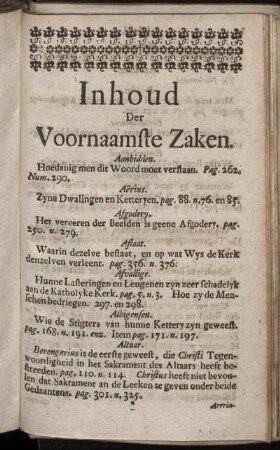 Inhoud
Der
Voornaamſte Zaken.
Aanbidden.
Hoedanig men dit Woord moet verſtaan. Pag. 262.
Num. 290.
Aërius.
Zyne Dwalingen en Ketteryen, pag. 88. n. 76. en 85.
Afgodery.
Het vereeren der Beelden is geene Afgodery. pag.
250. n. 279.
Aflaat.
Waarin dezelve beſtaat, en op wat Wys de Kerk
denzelven verleent. pag. 356. n. 376.
Afvallige.
Hunne Laſteringen en Leugenen zyn zeer ſchadelyk
aan de Katholyke Kerk. pag. 5. n. 3. Hoe zy de Men-
ſchen bedriegen. 297. en 298.
Albigenſen.
Wie de Stigters van hunne Kettery zyn geweeſt.
pag. 168. n. 191. enz. Item pag. 171. n. 197.
Altaar.
Berengarius is de eerſte geweeſt, die Chriſti Tegen-
woordigheid in het Sakrament des Altaars heeft be-
ſtreeden. pag. 110. n. 114. Chriſtus heeft niet bevoo-
len dat Sakrament aan de Leeken te geven onder beide
Gedaantens. pag. 301. n. 325.
Arria-